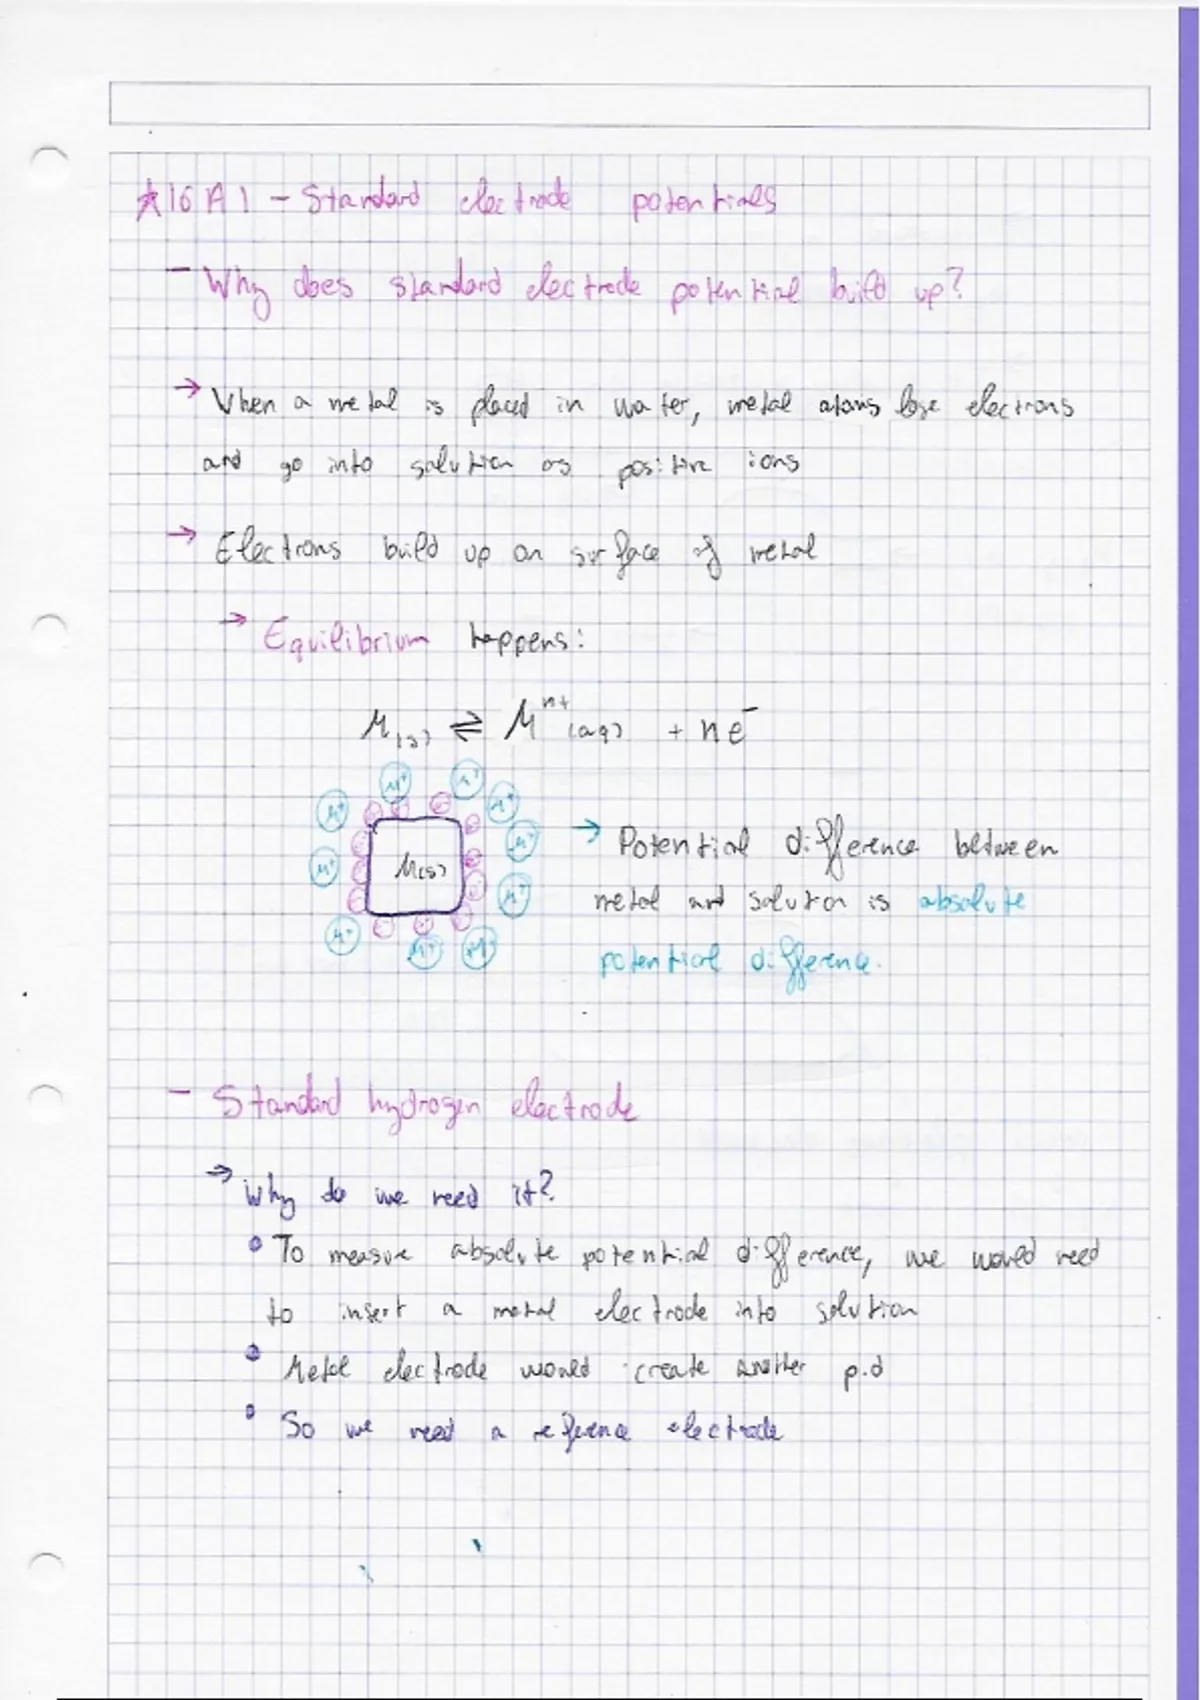 ★ 16 A 1 - Standard electrode potentials
- Why does standard electrode potential build up?
→ When a metal is placed in water, metal atoms lose electrons
and go into solution as positive ions
→ Electrons build up on surface of metal
→ Equilibrium happens:
M(s) ⇌ Mⁿ⁺(aq) + ne⁻
M⁺ M⁺
M⁺ M⁺
M⁺ M(s) M⁺
M⁺
M⁺ M⁺ M⁺
→ Potential difference between
metal and solution is absolute
potential difference.
- Standard hydrogen electrode
→ Why do we need it?
• To measure absolute potential difference, we would need
to insert a metal electrode into solution
• Metal electrode would create another p.d
• So we need a reference electrode